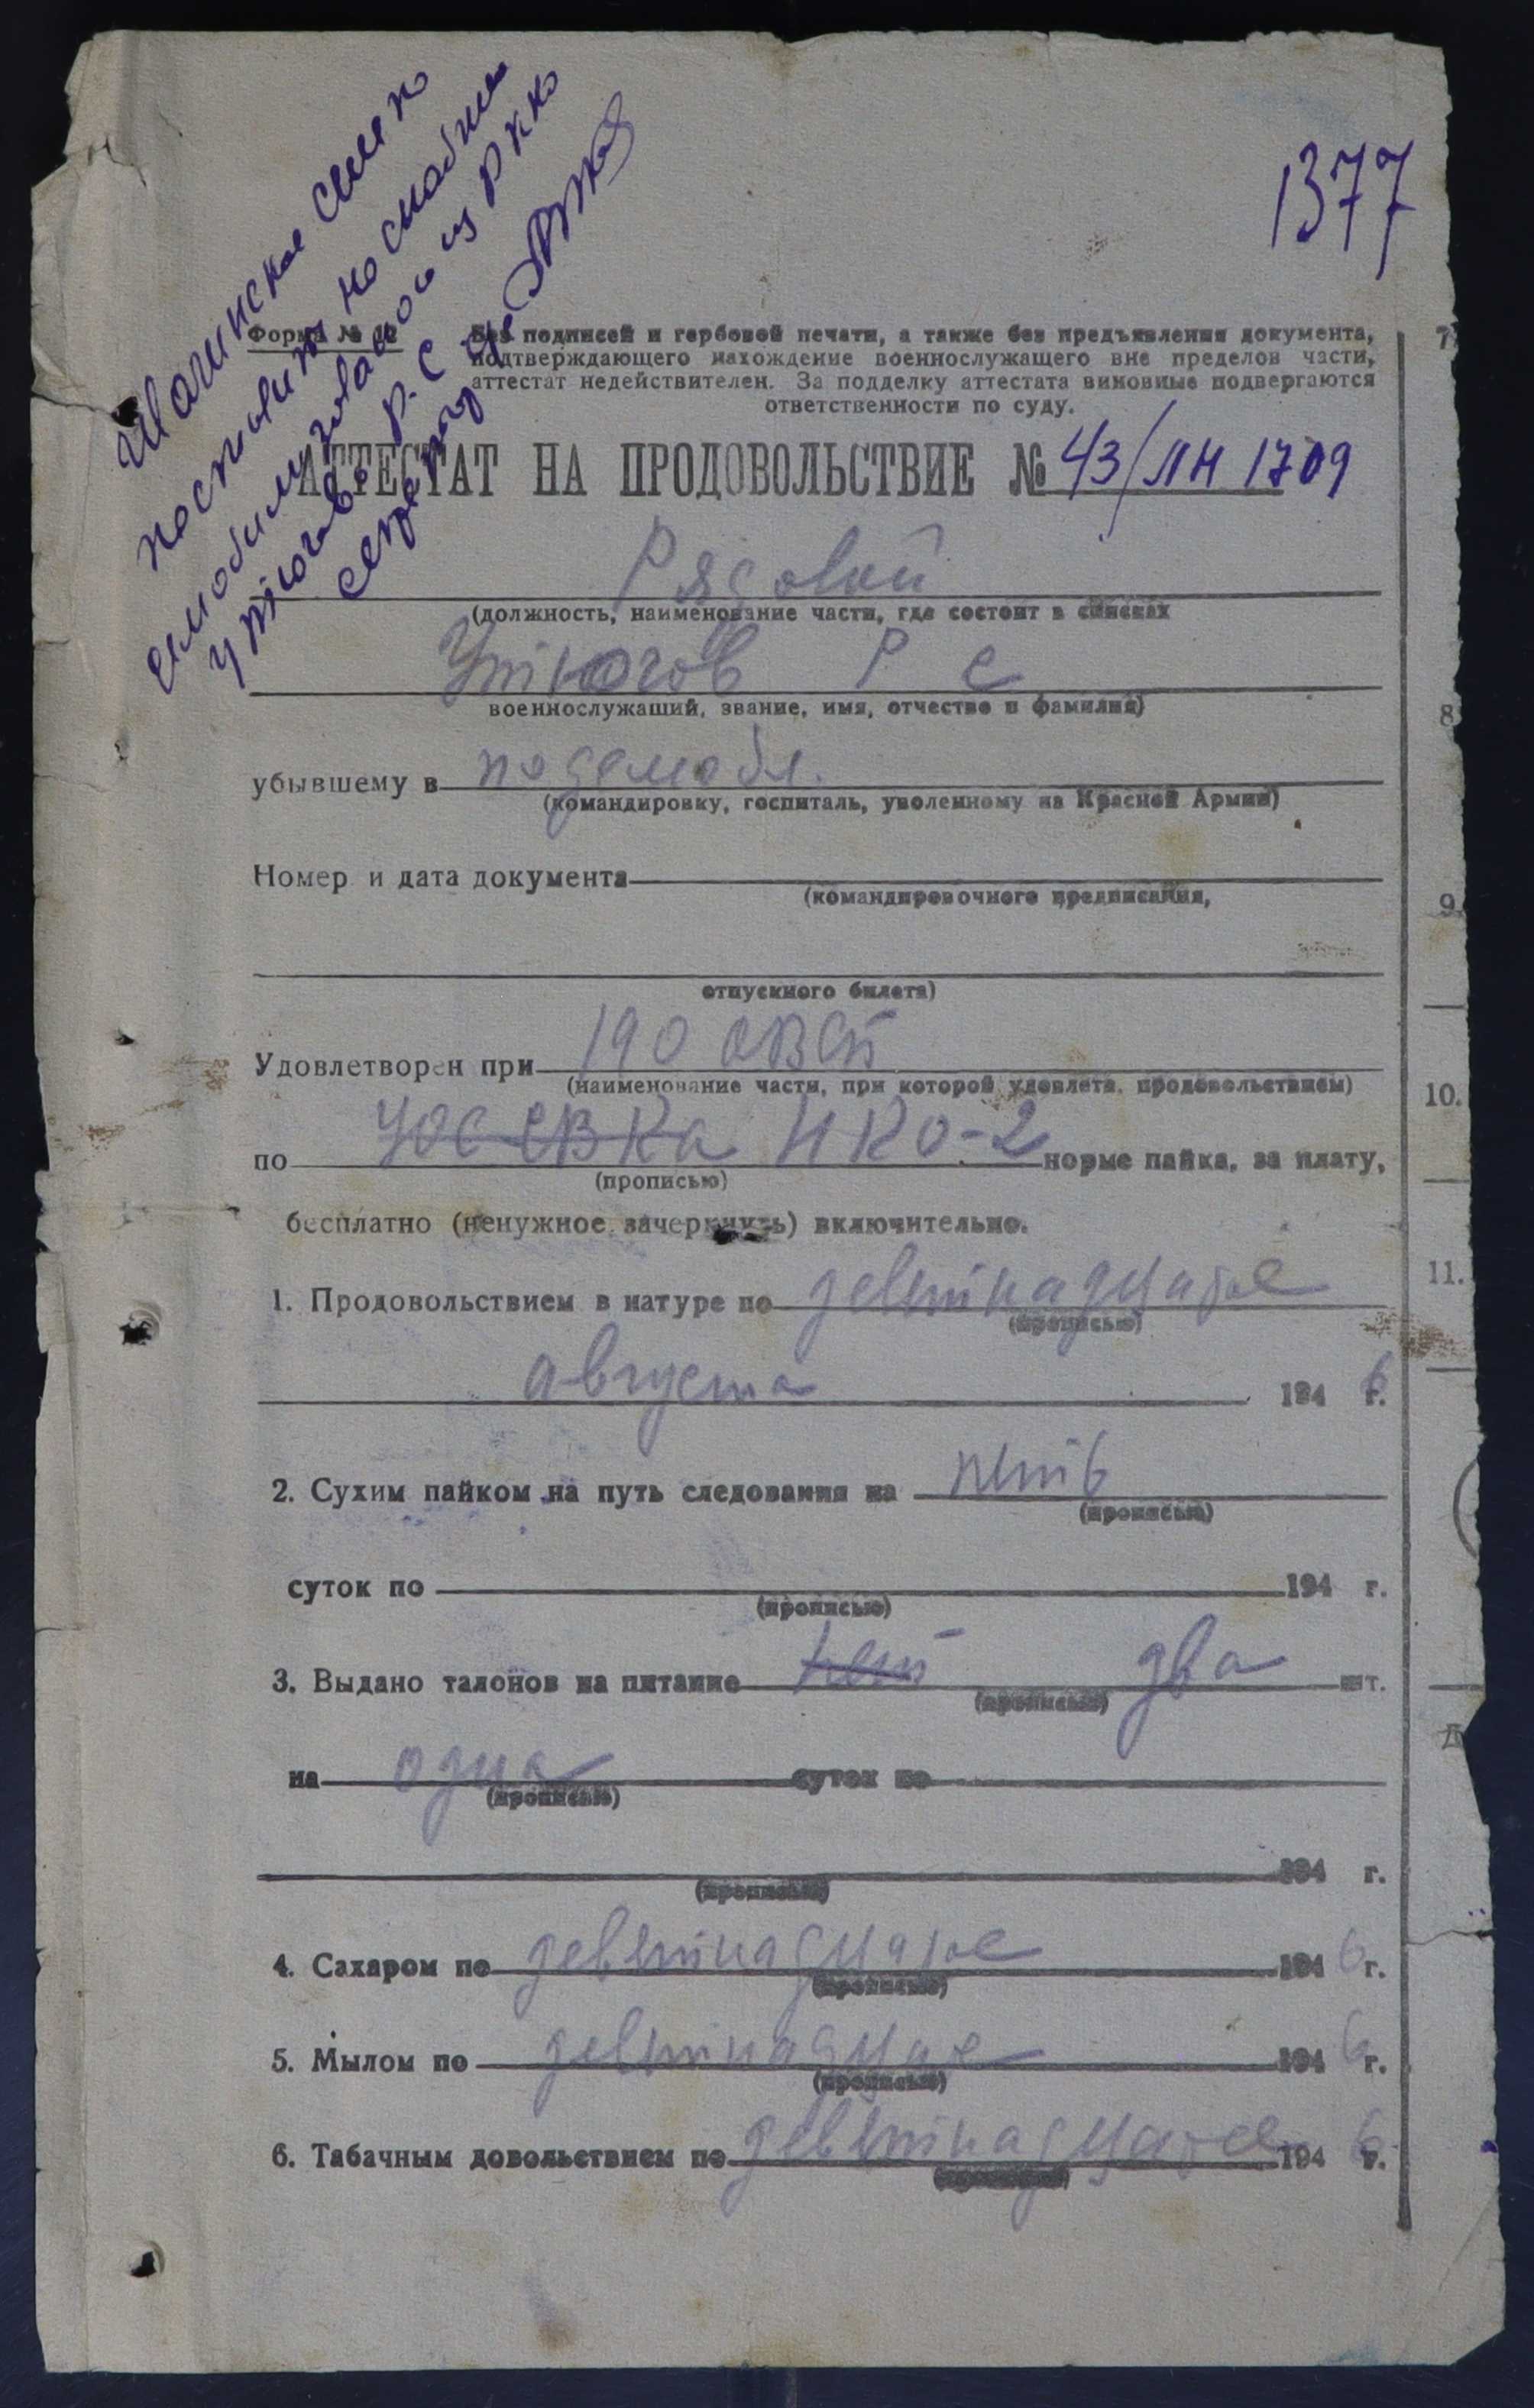 1377
поставить на снабжен
из РККА
Утюгов Р. С
Форма №
Без подписей и гербовой печати, а также без предъявления документа,
подтверждающего нахождение военнослужащего вне пределов части,
аттестат недействителен. За подделку аттестата виновные подвергаются
ответственности по суду.
АТТЕСТАТ НА ПРОДОВОЛЬСТВИЕ № 43/ЛН 1709
Рядовой
(должность, наименование части, где состоит в списках
Утюгов Р С
военнослужащий, звание, имя, отчество и фамилия)
убывшему в по демобил.
(командировку, госпиталь, уволенному из Красной Армии)
Номер и дата документа
(командировочного предписания,
отпускного билета)
Удовлетворен при 190
(наименование части, при которой удовлетв. продовольствием)
по НКО-2 норме пайка, за плату,
(прописью)
бесплатно (ненужное зачеркнуть) включительно.
1. Продовольствием в натуре по девятнадцатое
(прописью)
августа 1946 г.
2. Сухим пайком на путь следования на пять
(прописью)
суток по 194 г.
(прописью)
3. Выдано талонов на питание нет два шт.
(прописью)
на одна суток по
(прописью)
194 г.
(прописью)
4. Сахаром по девятнадцатое 1946 г.
(прописью)
5. Мылом по девятнадцатое 1946 г.
(прописью)
6. Табачным довольствием по девятнадцатое 1946 г.
(прописью)
7
8
9.
10.
11.